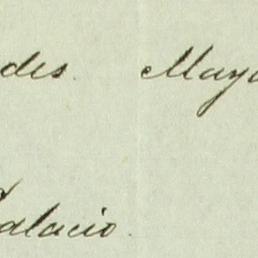 des. Mayo
Palacio.